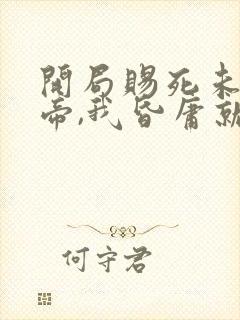 開局賜死未
帝,我昏庸就
何守君